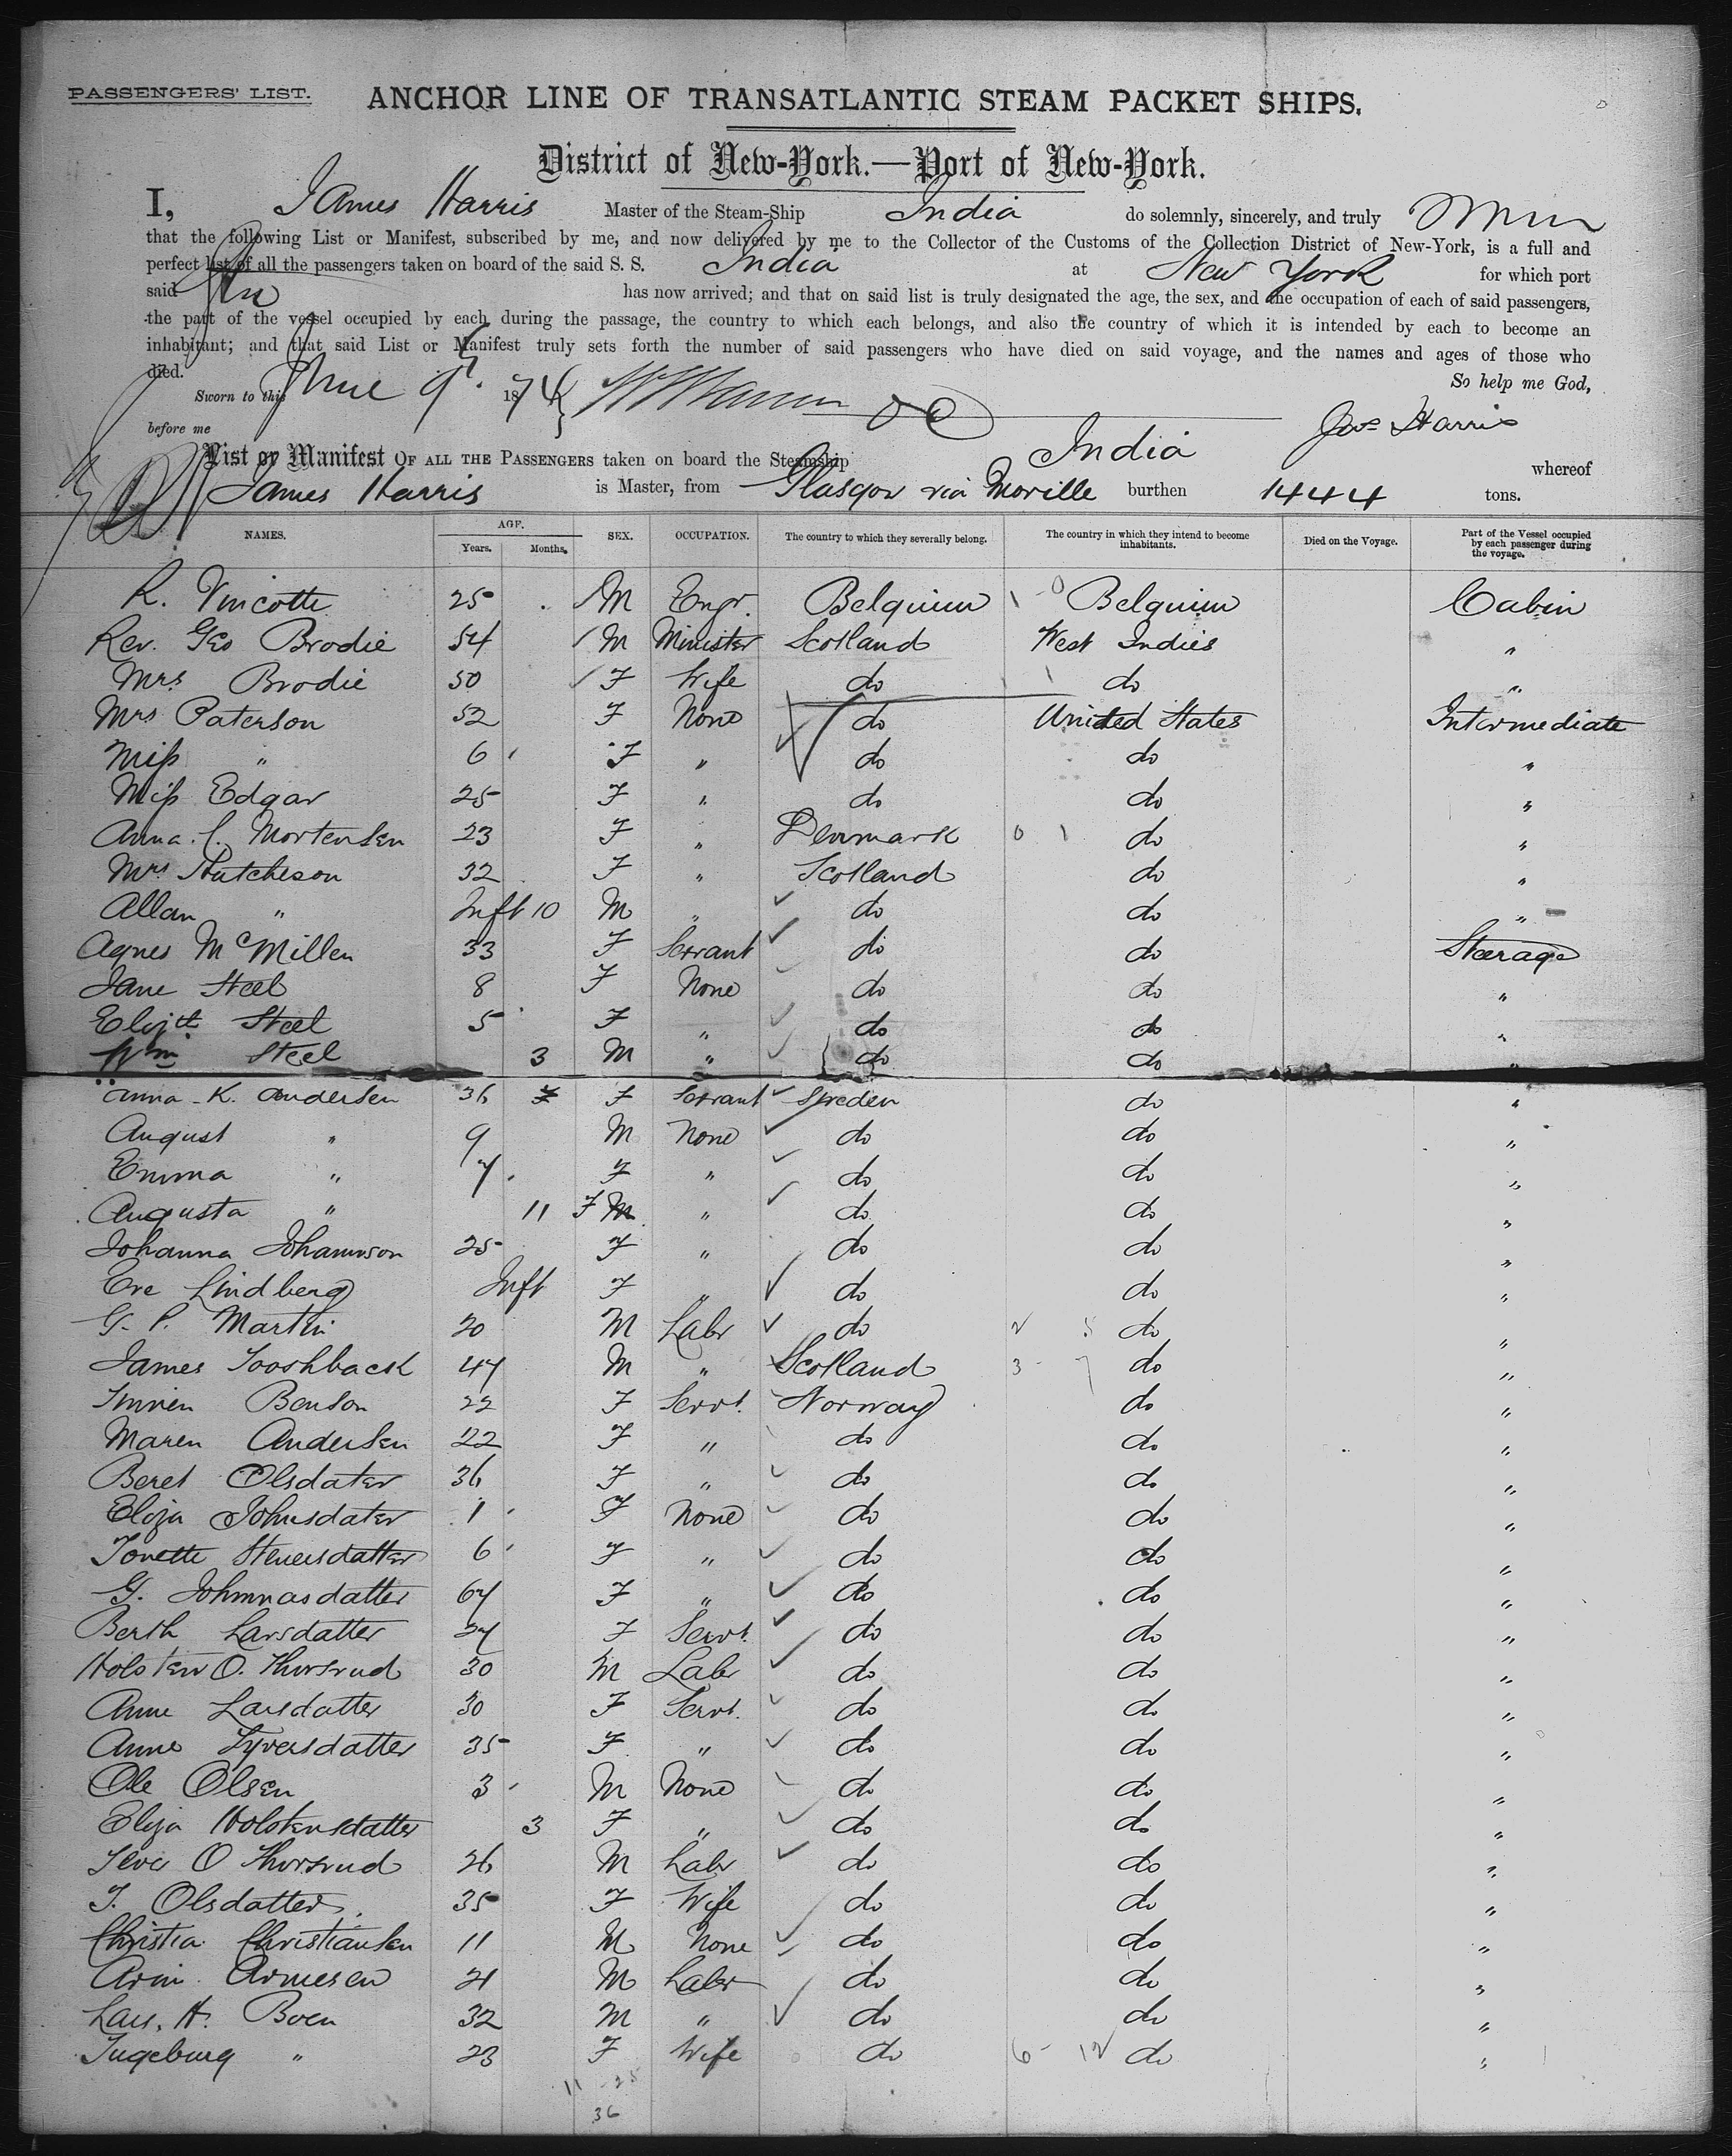 PASSENGERS' LIST.
ANCHOR LINE OF TRANSATLANTIC STEAM PACKET SHIPS.
District of New-York.—Port of New-York.
I, James Harris Master of the Steam-Ship India do solemnly, sincerely, and truly
that the following List or Manifest, subscribed by me, and now delivered by me to the Collector of the Customs of the Collection District of New-York, is a full and
perfect list of all the passengers taken on board of the said S. S. India at New York for which port
said has now arrived; and that on said list is truly designated the age, the sex, and the occupation of each of said passengers,
the part of the vessel occupied by each during the passage, the country to which each belongs, and also the country of which it is intended by each to become an
inhabitant; and that said List or Manifest truly sets forth the number of said passengers who have died on said voyage, and the names and ages of those who
died. So help me God,
Sworn to this June 9th 187
before me Jas Harris
List or Manifest OF ALL THE PASSENGERS taken on board the Steamship India whereof
James Harris is Master, from Glasgow via Moville burthen 1444 tons.
NAMES. AGE. SEX. OCCUPATION. The country to which they severally belong. The country in which they intend to become inhabitants. Died on the Voyage. Part of the Vessel occupied by each passenger during the voyage.
Years. Months.
R. Vincotte 25 M Engr. Belguium Belguim Cabin
Rev. Geo Brodie 54 M Minister Scotland West Indies "
Mrs Brodie 50 F Wife do do "
Mrs Paterson 52 F None do United States Intermediate
Miss " 6 F " do do "
Miss Edgar 25 F " do do "
Anna C. Mortensen 23 F " Denmark do "
Mrs Hutcheson 32 F " Scotland do "
Allan " Inft 10 M " do do "
Agnes McMillen 33 F Servant do do Steerage
Jane Steel 8 F None do do "
Elizth Steel 5 F " do do "
Wm Steel 3 M " do do "
Anna K. Andersen 36 F Servant Sweden do "
August " 9 M None do do "
Emma " 7 F " do do "
Augusta " 11 F M " do do "
Johanna Johannson 25 F " do do "
Eve Lindberg Inft F " do do "
G. P. Martin 20 M Labr do do "
James Tooshback 47 M " Scotland do "
Benson 22 F Servt. Norway do "
Maren Andersen 22 F " do do "
Beret Olsdater 36 F " do do "
Eliza Johnsdater 1 F None do do "
Tonette Stenersdatter 6 F " do do "
G. Johnnasdatter 67 F " do do "
Berth Larsdatter 27 F Servt. do do "
Holsten O. Thorsrud 30 M Labr do do "
Anne Larsdatter 30 F Servt. do do "
Anne Syversdatter 35 F " do do "
Ole Olsen 3 M None do do "
Eliza Holstensdatter 3 F " do do "
Iver O Thorsrud 26 M Labr do do "
T. Olsdatter 35 F Wife do do "
Christia Christiansen 11 M None do do "
Arni Arnesen 21 M Labr do do "
Lars. H. Boen 32 M " do do "
Ingeburg " 23 F Wife do do "
11 - 25
36